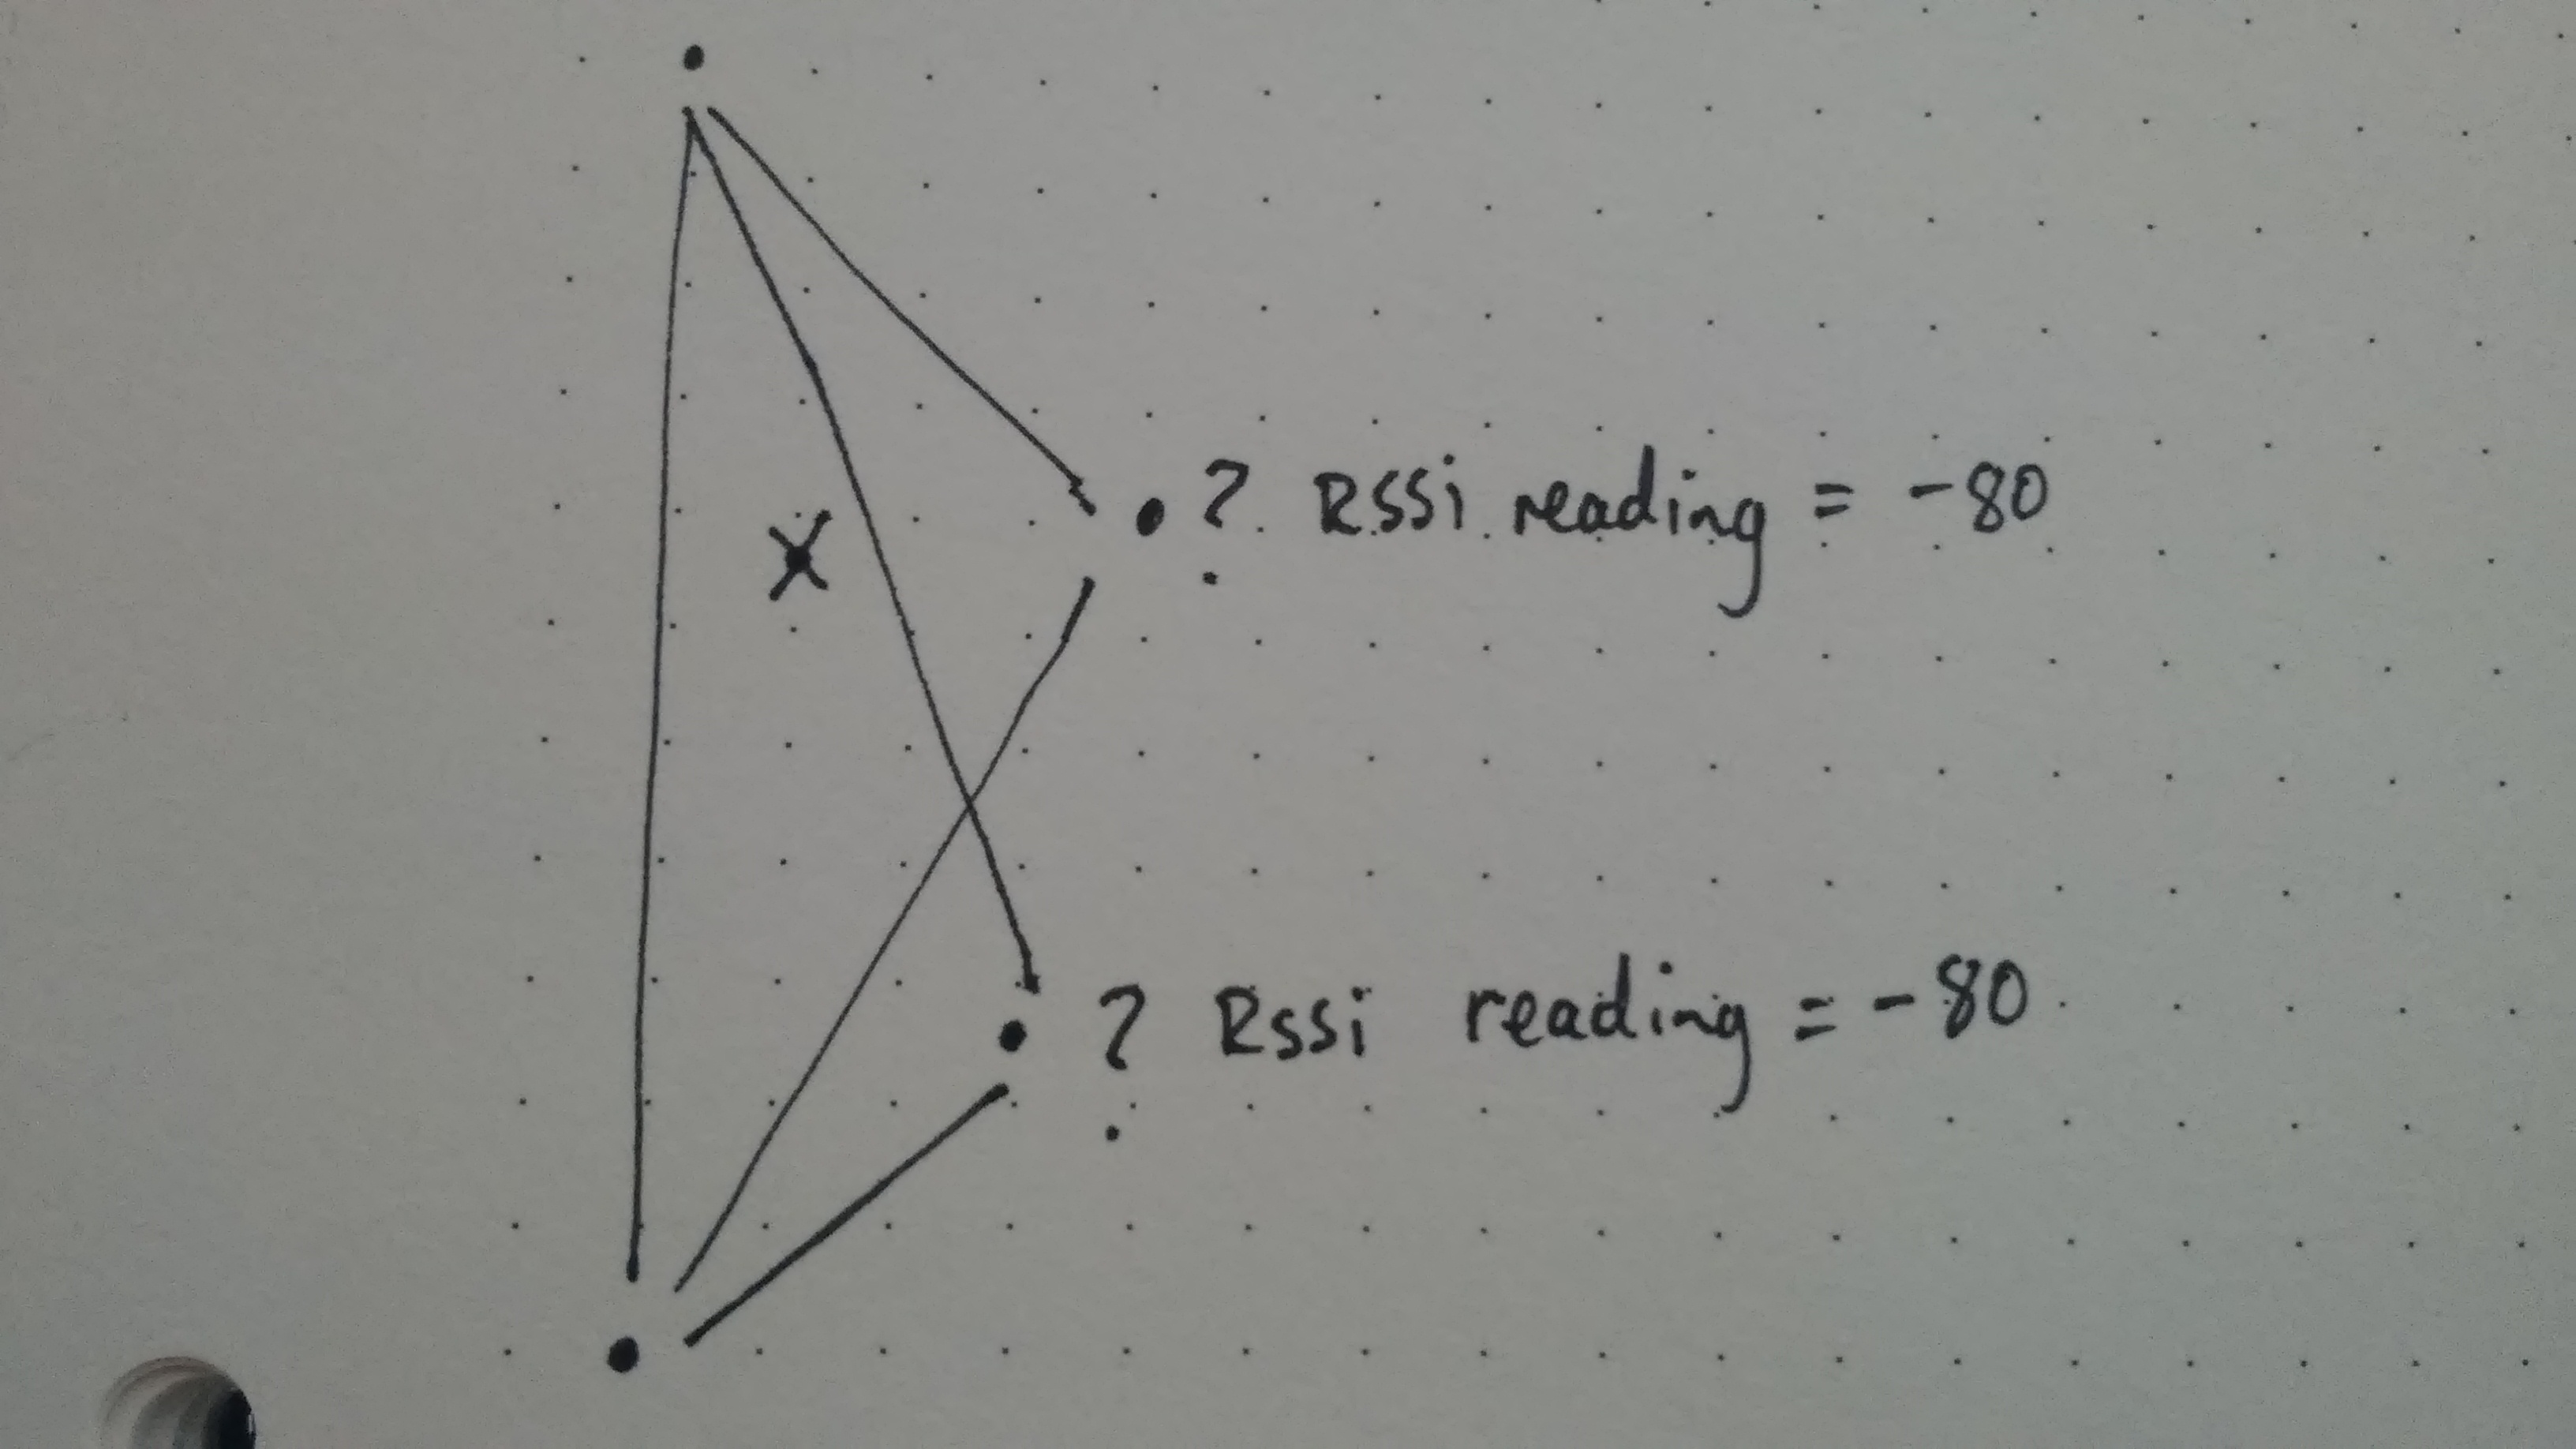 X
? RSSi reading = -80
? RSSi reading = -80